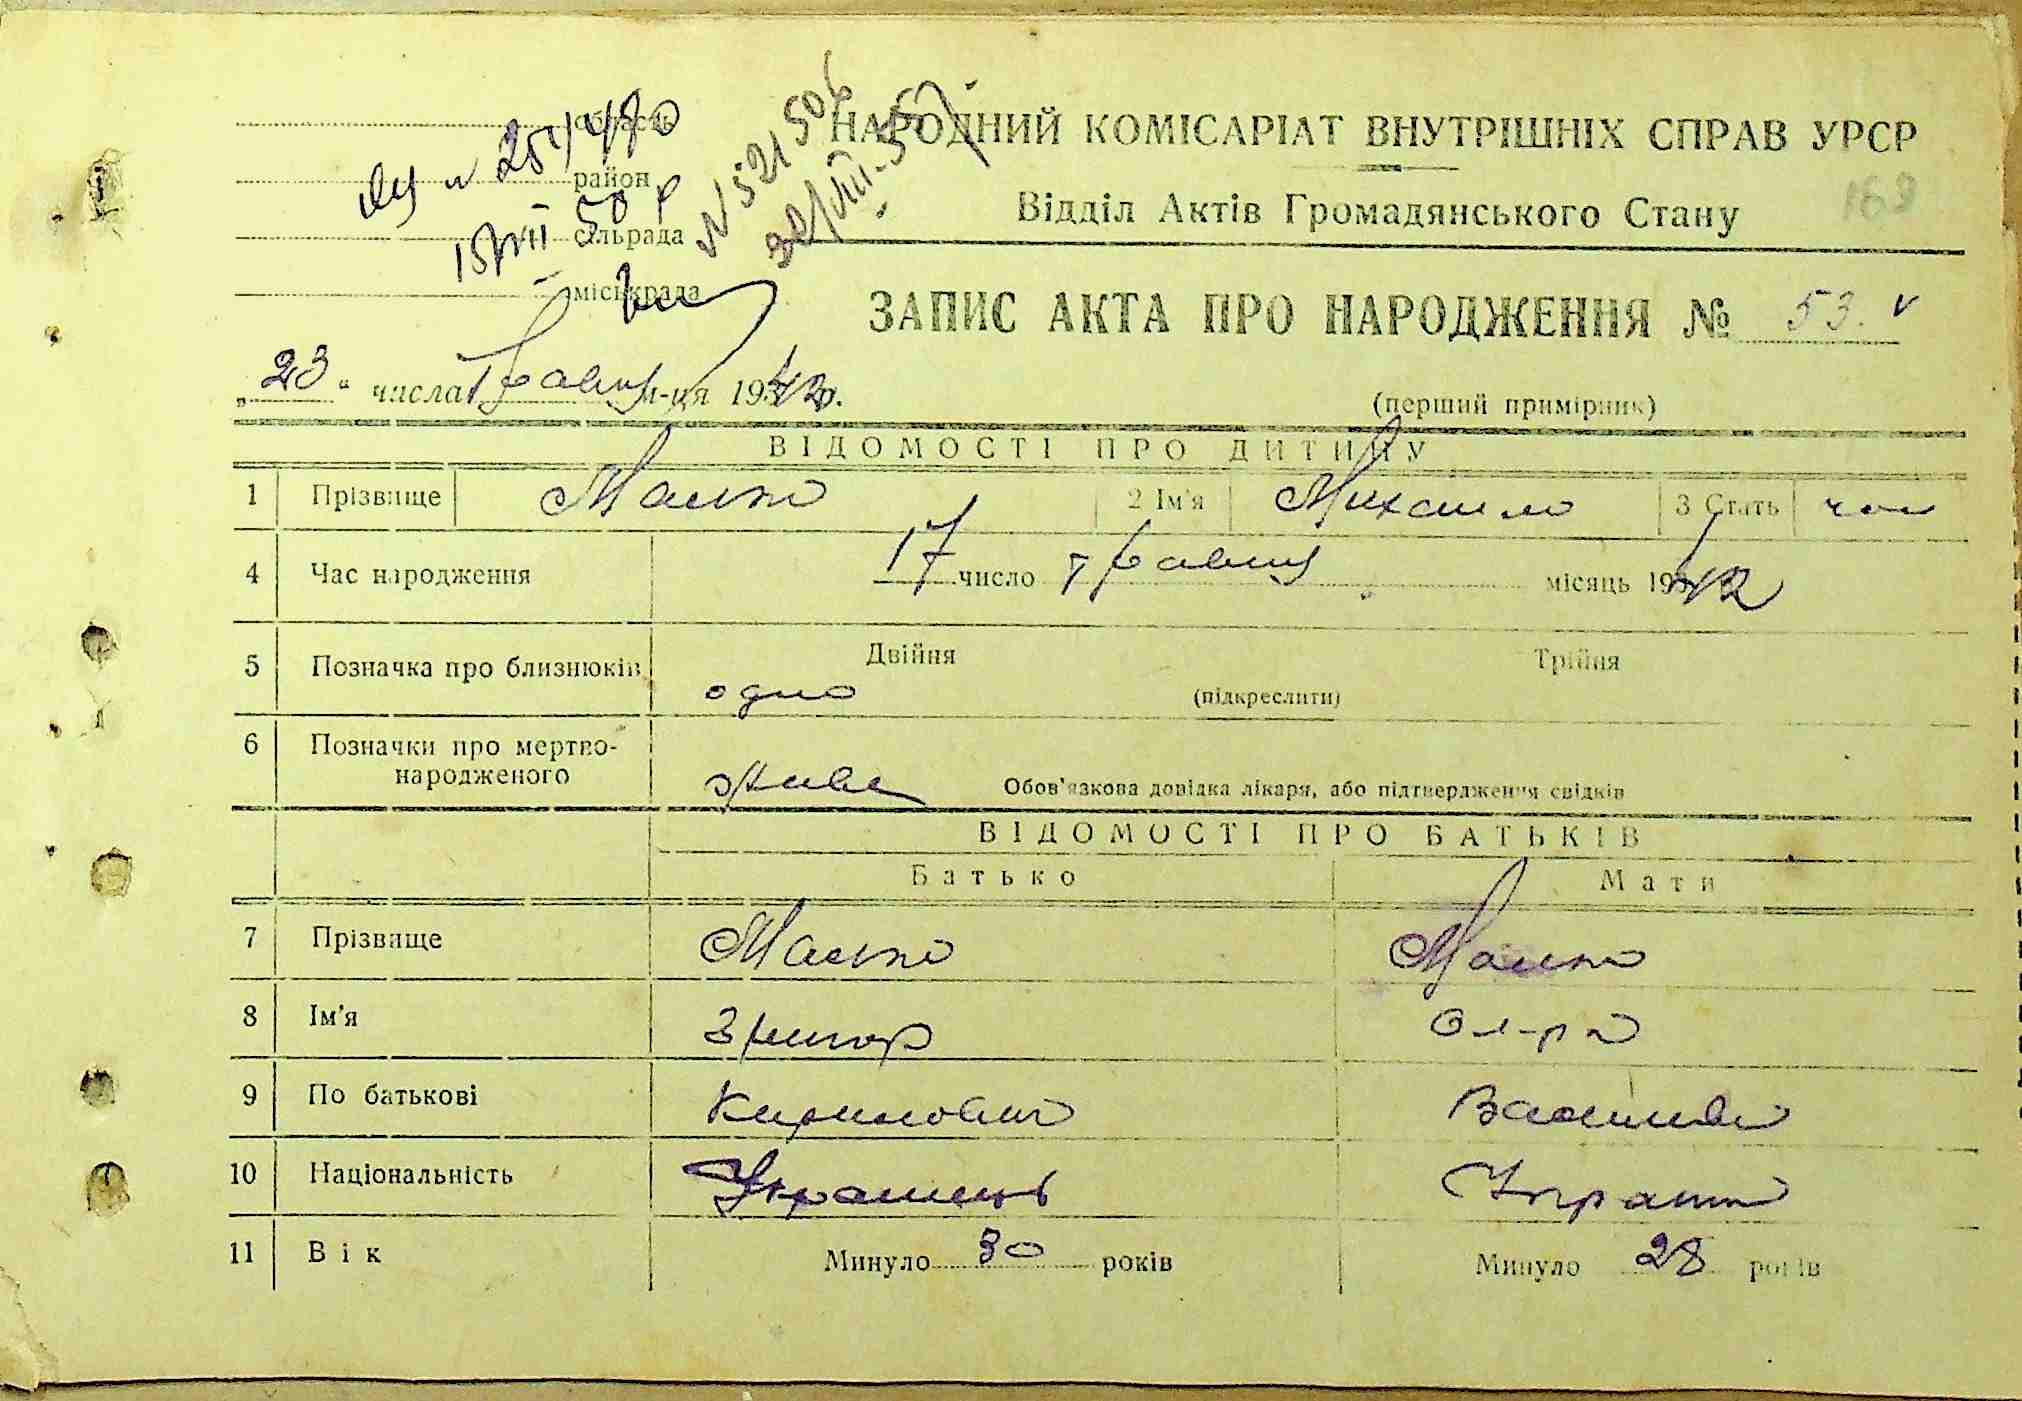 область
район
сільрада
міськрада
15/VII 50 р
N 521506
НАРОДНИЙ КОМІСАРІАТ ВНУТРІШНІХ СПРАВ УРСР
Відділ Актів Громадянського Стану
168
ЗАПИС АКТА ПРО НАРОДЖЕННЯ № 53
„23" числа Травня м-ця 1942 р.
(перший примірник)
ВІДОМОСТІ ПРО ДИТИНУ
1 Прізвище Малко 2 Ім'я Михайло 3 Стать чол
4 Час народження 17 число травня місяць 1942
5 Позначка про близнюків Двійня Трійня
одно (підкреслити)
6 Позначки про мертво-
народженого живе Обов'язкова довідка лікаря, або підтвердження свідків
ВІДОМОСТІ ПРО БАТЬКІВ
Батько Мати
7 Прізвище Малко Малко
8 Ім'я
9 По батькові Кирилович
10 Національність Українець Укра
11 Вік Минуло 30 років Минуло 28 років